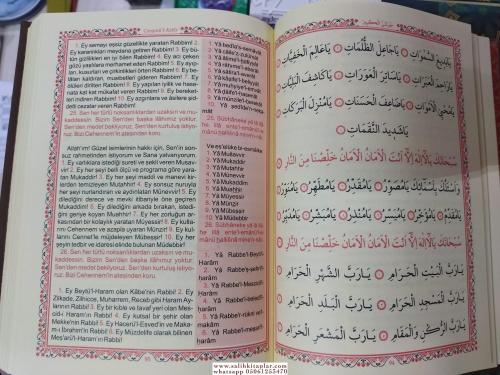 Cevşenü'l-Kebîr
1. Ey semayı eşsiz güzellikte yaratan Rabbim! 2.
Ey karanlıkları meydana getiren Rabbim! 3. Ey bü-
tün gizlilikleri en iyi bilen Rabbim! 4. Ey acı çeken
göz yaşlarına merhamet eden Rabbim! 5. Ey ayıp,
kusurları ve çirkinlikleri örten Rabbim! 6. Ey be-
laları kaldıran, musibetleri defeden Rabbim! 7. Ey
ölüleri dirilten Rabbim! 8. Ey yapılan iyilik ve hase-
nata kat kat mükafat veren Rabbim! 9. Ey bereket-
leri indiren Rabbim! 10. Ey azgınlara ve asilere şid-
detli cezalar veren Rabbim!
26. Sen her türlü noksanlıklardan uzaksın ve mu-
kaddessin. Bizim Sen'den başka ilâhımız yoktur.
Sen'den medet bekliyoruz; Sen'den kurtuluş istiyo-
ruz. Bizi Cehennem'in ateşinden koru.
Allah'ım! Güzel isimlerinin hakkı için, Sen'in son-
suz rahmetinden istiyorum ve Sana yalvarıyorum.
1. Ey varlıklara istediği sureti ve şekli veren Musav-
vir! 2. Ey her şeyi belli ölçü ve programa göre yara-
tan Mukaddir! 3. Ey her şeyi maddi ve manevi kir-
lerden temizleyen Mutahhir! 4. Ey sonsuz nuruyla
her şeyi nurlandıran ve aydınlatan Münevvir! 5. Ey
dilediğini derece ve mevki itibariyle öne geçiren
Mukaddim! 6. Ey dilediğini arkada bırakan,
geriye koyan Muahhir! 7. Ey her zorluğun arka-
sından bir kolaylık yaratan Müyessir! 8. Ey kulla-
rını Cehennem ve azapla uyaran Münzir! 9. Ey kul-
larını Cennet'le müjdeleyen Mübeşşir! 10. Ey her
şeyin tedbir ve idaresi elinde bulunan Müdebbir!
26. Sen her türlü noksanlıklardan uzaksın ve mu-
kaddessin. Bizim Sen'den başka ilâhımız yoktur.
Sen'den medet bekliyoruz; Sen'den kurtuluş istiyo-
ruz. Bizi Cehennem'in ateşinden koru.
1. Ey Beytü'l-Haram olan Kâbe'nin Rabbi! 2. Ey
Zilkade, Zilhicce, Muharrem, Recep gibi Haram Ay-
larının Rabbi! 3. Ey bir kıble ve tavaf yeri olan Mes-
cid-i Haram'ın Rabbi! 4. Ey kutsal bir şehir olan
Mekke'nin Rabbi! 5. Ey Hacerü'l-Esved'in ve Maka-
m-ı İbrahim'in Rabbi! 6. Ey Müzdelife olarak bilinen
Meş'arü'l-Haram'ın Rabbi!
1. Yâ bedîa's-semâvât
2. Yâ câile'z-zulümât
3. Yâ âlime'l-hafiyyât
4. Yâ râhime'l-aberât
5. Yâ sâtira'l-avrât
6. Yâ kâşife'l-beliyyât
7. Yâ muhyiye'l-emvât
10. Yâ şedîde'n-nıka-
mât
Ve es'elüke bi-esmâike
1. Yâ Musavvir
2. Yâ Mukaddir
3. Yâ Mutahhir
4. Yâ Münevvir
5. Yâ Mukaddim
6. Yâ Muahhir
7. Yâ Müyessir
8. Yâ Münzir
9. Yâ Mübeşşir
10. Yâ Müdebbir
1. Yâ Rabbe'l-Beyti'l-
harâm
harâm
harâm
harâm
makâm
harâm
يَابَدِيعَ السَّمٰوَاتِ يَاجَاعِلَ الظُّلُمَاتِ يَاعَالِمَ الْخَفِيَّاتِ
يَارَاحِمَ الْعَبَرَاتِ يَاسَاتِرَ الْعَوْرَاتِ يَاكَاشِفَ الْبَلِيَّاتِ
يَامُحْيِيَ الْاَمْوَاتِ يَاضَاعِفَ الْحَسَنَاتِ يَامُنْزِلَ الْبَرَكَاتِ
يَاشَدِيدَ النَّقِمَاتِ
سُبْحَانَكَ يَالَآ اِلٰهَ اِلَّا اَنْتَ الْاَمَانُ الْاَمَانُ خَلِّصْنَا مِنَ النَّارِ
وَاَسْئَلُكَ بِاَسْمَائِكَ يَامُصَوِّرُ يَامُقَدِّرُ يَامُطَهِّرُ يَامُنَوِّرُ
يَامُقَدِّمُ يَامُؤَخِّرُ يَامُيَسِّرُ يَامُنْذِرُ يَامُبَشِّرُ يَامُدَبِّرُ
سُبْحَانَكَ يَالَآ اِلٰهَ اِلَّا اَنْتَ الْاَمَانُ الْاَمَانُ خَلِّصْنَا مِنَ النَّارِ
يَارَبَّ الْبَيْتِ الْحَرَامِ يَارَبَّ الشَّهْرِ الْحَرَامِ
يَارَبَّ الْمَسْجِدِ الْحَرَامِ يَارَبَّ الْبَلَدِ الْحَرَامِ
يَارَبَّ الرُّكْنِ وَالْمَقَامِ يَارَبَّ الْمَشْعَرِ الْحَرَامِ
www.salihkitaplar.com
whatsapp 05061255470